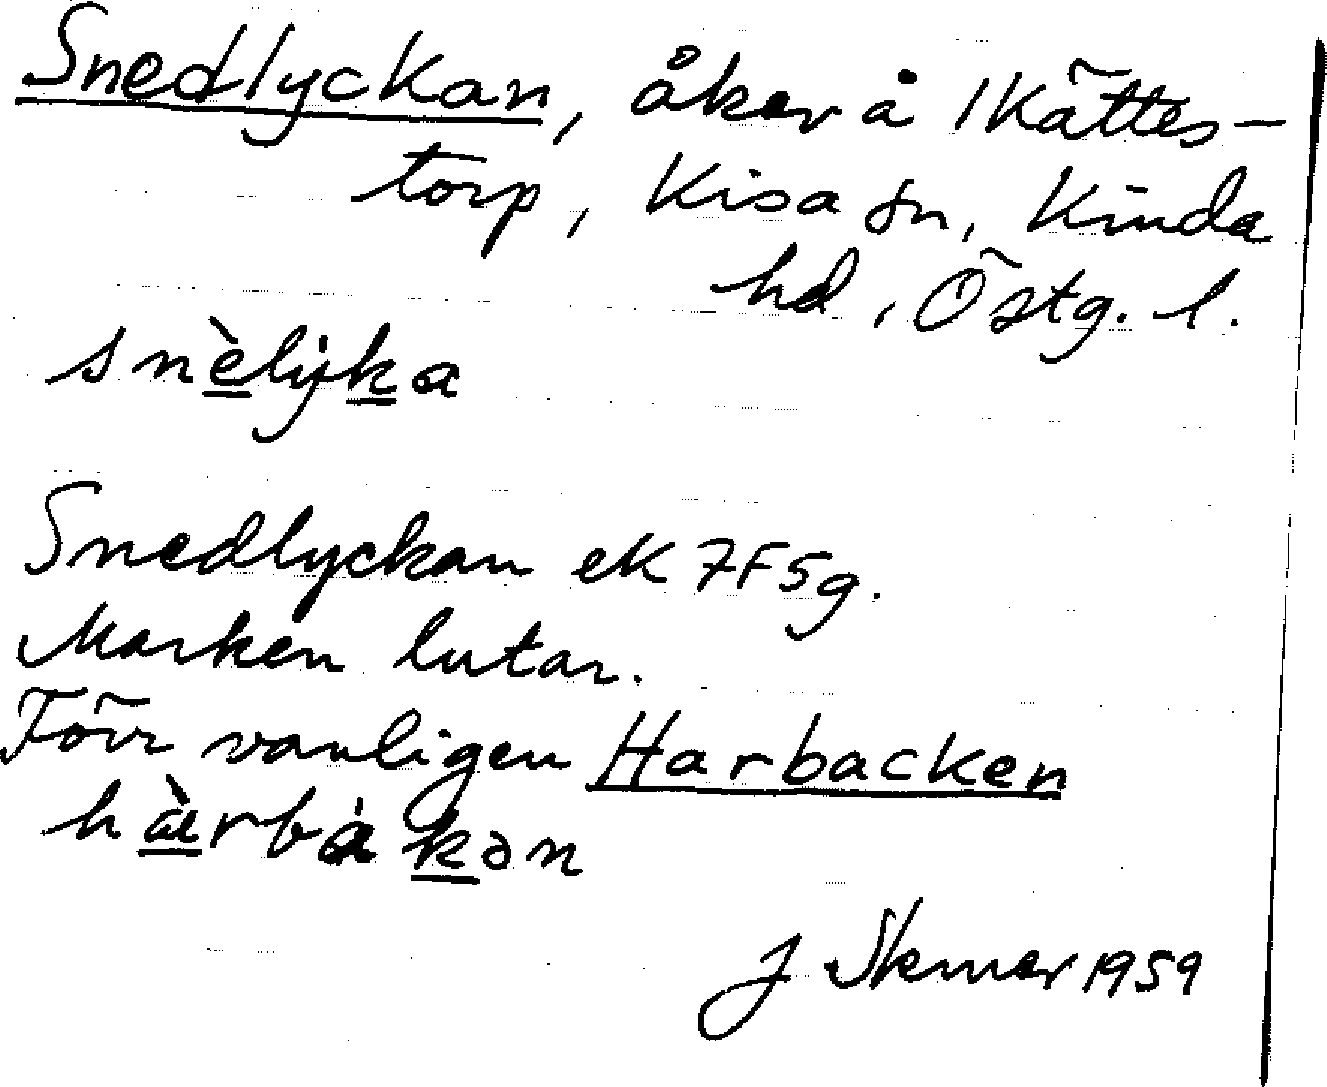 Snedlyckan, åker å 1 Kättes-
torp, Kisa sn, Kinda
hd, Östg. l.
snèlyka
Snedlyckan eK 7F5g.
Marken lutar.
Förr vanligen Harbacken
hàrbakən
J 1959